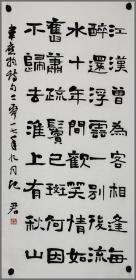 江漢曾為客相逢每
醉還浮雲一別後流
水十年間歡笑情如
舊蕭疏鬢已斑何因
不歸去淮上有秋山
韋應物詩 二零一七年九月 君